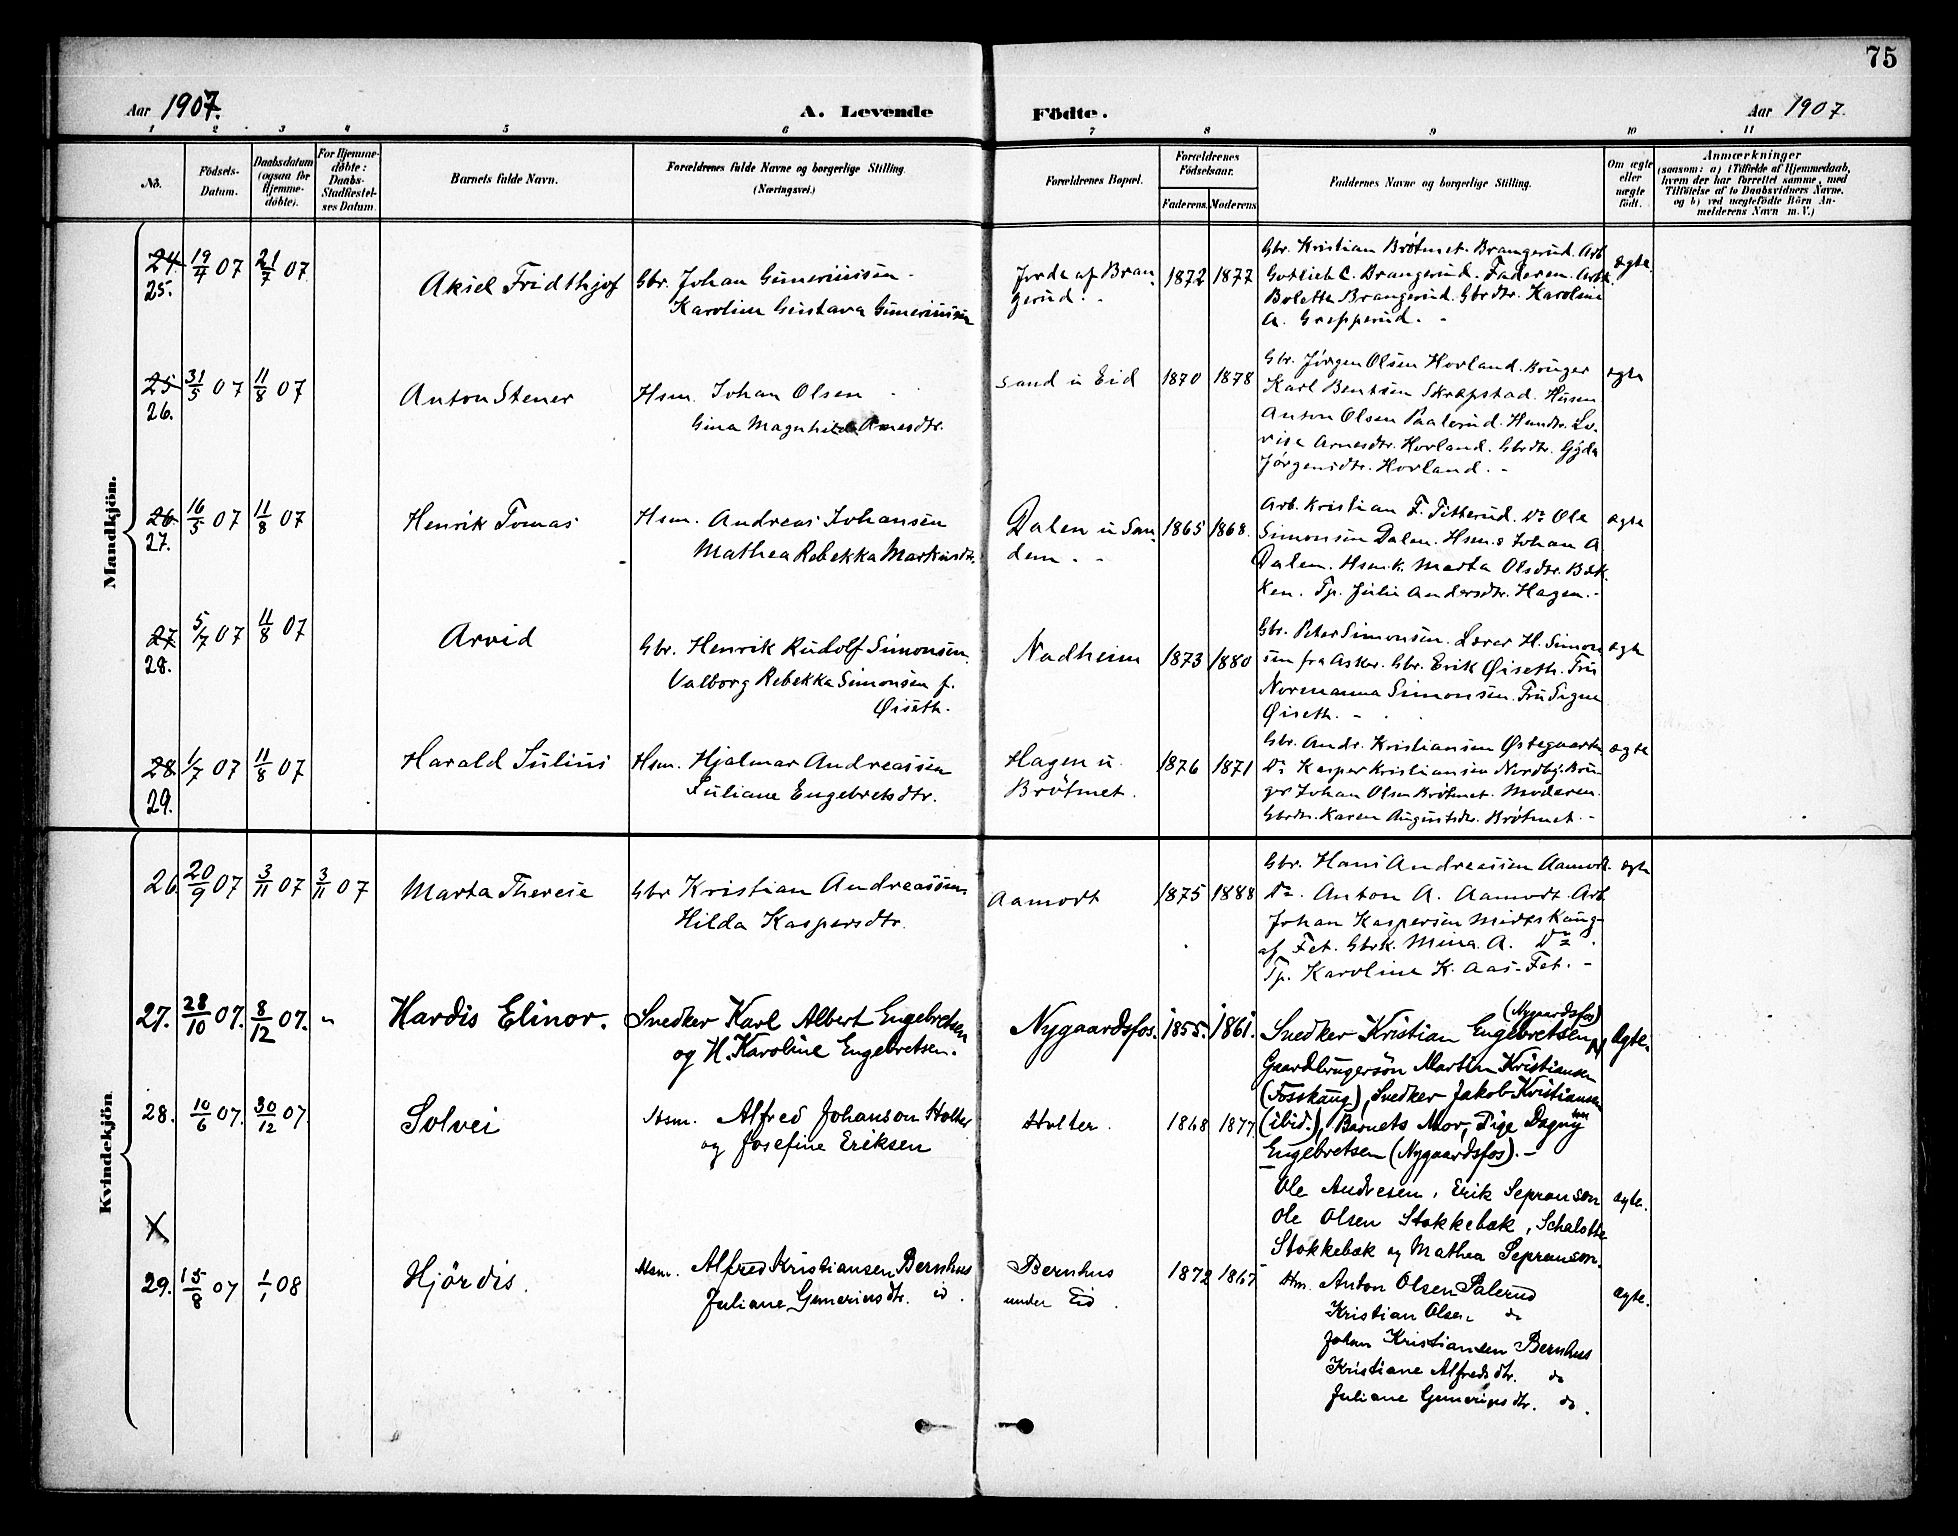 75
Aar 1907.
A. Levende Födte.
Aar 1907.
1 2 3 4 5 6 7 8 9 10 11
No.
Födsels-Datum.
Daabsdatum (ogsaa for Hjemme-döbte).
For Hjemme-döbte: Daabs-Stadfæstel-ses Datum.
Barnets fulde Navn.
Forældrenes fulde Navne og borgerlige Stilling.
(Næringsvei.)
Forældrenes Bopæl.
Forældrenes Födselsaar.
Faderens. Moderens
Faddernes Navne og borgerlige Stilling.
Om ægte eller uægte födt.
Anmærkninger
(saasom: a) i Tilfælde af Hjemmedaab,
hvem der har forrettet samme, med
Tilföielse af to Daabsvidners Navne.
og b) ved uægtefödte Börn An-
melderens Navn m. V.)
Mandkjön.
24. 25. 19/4 07 21/7 07
Aksel Fridthjof
Gbr. Johan Gunerius­sen
Karoline Gustava Guneriussen
Jorde af Bran-
gerud.
1872 1877
Gbr. Kristian Brøtmet. Brangerud. Arb.
Gotlieb C. Brangerud. Faderen. Arbk.
Bolette Brangerud. Gbrdtr. Karoline
A. Grepperud.
ægte
25 26. 31/5 07 11/8 07
Anton Stener
Hsm. Johan Olsen
Gina Magnhild Arnesdtr.
Sand u Eid
1870 1878
Gbr. Jørgen Olsen Hovland. Bruger
Karl Bentsen Skrepstad. Husm
Anton Olsen Paalerud. Hundtr. Lo-
vise Arnesdtr. Hovland. Gbrdtr. Gyda
Jørgensdtr. Hovland.
ægte
26. 27. 16/5 07 11/8 07
Henrik Tomas
Hsm. Andreas Johansen
Mathea Rebekka Markusdtr.
Dalen u San-
dem.
1865 1868.
Arb. Kristian F. Titterud. Do Ole
Simonsen Dalen. Hsm.s Johan A.
Dalen. Hsm.k. Marta Olsdtr. Bak-
ken. Tp. Julie Andersdtr. Hagen.
ægte
27 28. 5/7 07 11/8 07
Arvid
Gbr. Henrik Rudolf Simonsen
Valborg Rebekka Simonsen f.
Øiseth.
Nadheim
1873 1880
Gbr. Peter Simonsen. Lærer H. Simon
sen fra Asker. Gbr. Erik Øiseth. Fru
Normanna Simonsen. Fru Signe
Øiseth.
ægte
28 29. 1/7 07 11/8 07
Harald Julius
Hsm. Hjalmar Andreassen
Juliane Engebretsdtr.
Hagen u.
Brøtmet.
1876 1871
Gbr. Andr. Kristiansen Østegaarden
Do Kasper Kristiansen Nordby. Bru-
ger Johan Olsen Brøtmet. Moderen.
Gbrdtr. Karen Augustsdtr. Brøtmet.
ægte
Kvindekjön.
26. 20/9 07 3/11 07 3/11 07
Marta Therese
Gbr Kristian Andreassen
Hilda Kaspersdtr.
Aamodt
1875 1888
Gbr. Hans Andreassen Aamodt.
Do. Anton A. Aamodt. Arb.
Johan Kaspersen Midtskoug-
af Fet. Gbrk. Mina A. Do.
Tp. Karoline K. Aas-Fet.
ægte
27. 28/10 07. 8/12 07. "
Hardis Elinor.
Snedker Karl Albert Engebretsen
og H. Karoline Engebretsen.
Nygaardsfos.
1855. 1861.
(Nygaardsfos)
Snedker Kristian Engebretsen,
Gaardbrugersön Martin Kristiansen
(Fosskaug), Snedker Jakob Kristiansen
(ibid.), Barnets Mor, Pige Dagny
Engebretsen (Nygaardsfos).
Ægte.
28. 10/6 07. 30/12 07.
Solvei
Hsm. Alfred Johanson Holter
og Josefine Eriksen
Holter.
1868 1877.
Ole Andresen, Erik Sepranson
Ole Olsen Stokkebæk, Schalotte
Stokkebæk og Mathea Sepranson.
ægte.
X
29. 15/8 07 1/1 08
Hjördis.
Hsm. Alfred Kristiansen Bernhus
Juliane Guneriusdtr. id.
Bernhus
under Eid.
1872 1867
Hm. Anton Olsen Palerud
Kristian Olsen do
Johan Kristiansen Bernhus
Kristiane Alfredsdtr. do
Juliane Guneriusdtr. do.
ægte.